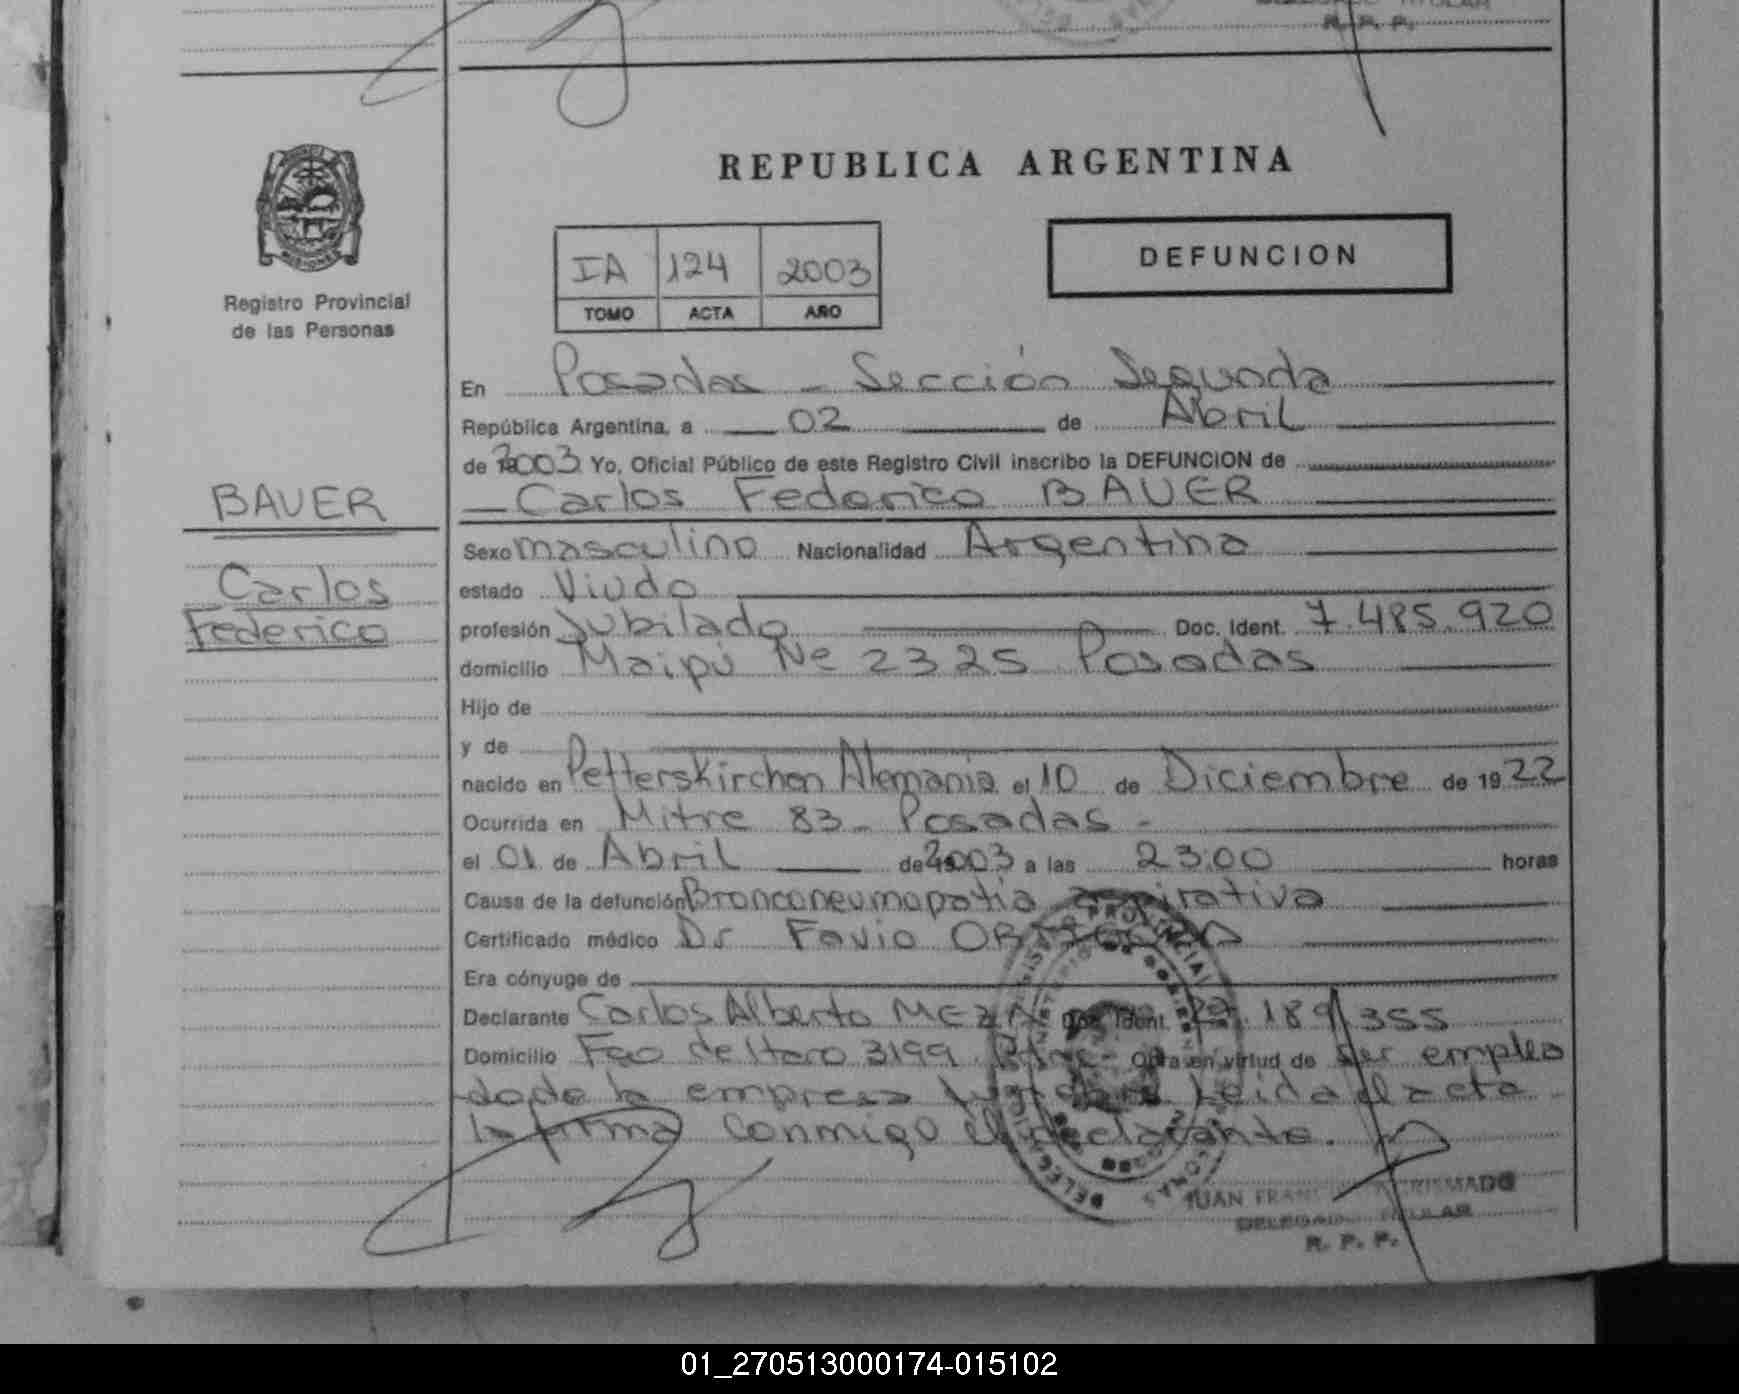 R. P. P.
REPUBLICA ARGENTINA
MISIONES
Registro Provincial
de las Personas
IA 124 2003
TOMO ACTA AÑO
DEFUNCION
En Posadas - Sección Segunda
República Argentina, a 02 de Abril
de 2003 Yo, Oficial Público de este Registro Civil inscribo la DEFUNCION de
Carlos Federico BAUER
BAUER
Carlos
Federico
Sexo masculino Nacionalidad Argentina
estado Viudo
profesión Jubilado Doc. Ident. 7.485.920
domicilio Maipú Nº 2325 Posadas
Hijo de
y de
nacido en Petterskirchen Alemania el 10 de Diciembre de 1922
Ocurrida en Mitre 83 - Posadas -
el 01 de Abril de 2003 a las 23.00 horas
Causa de la defunción Bronconeumopatia aspirativa
Certificado médico Dr Favio
Era cónyuge de
Declarante Carlos Alberto MEZA Doc. Ident. 189.355
Domicilio Fco de Haro 3199 Obra en virtud de ser emplea
do de la empresa Leida el acta
la firma conmigo el declarante.
JUAN
DELEGADO TITULAR
R. P. P.
01_270513000174-015102